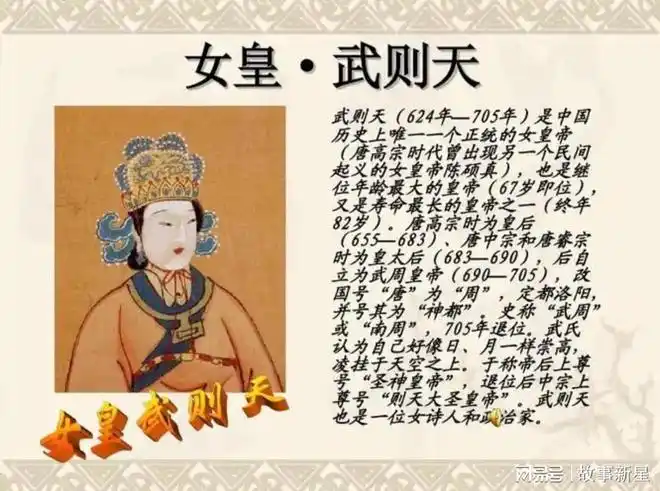 女皇·武则天
武则天（624年—705年）是中国
历史上唯一一个正统的女皇帝
（唐高宗时代曾出现另一个民间
起义的女皇帝陈硕真），也是继
位年龄最大的皇帝（67岁即位），
又是寿命最长的皇帝之一（终年
82岁）。唐高宗时为皇后
（655—683）、唐中宗和唐睿宗
时为皇太后（683—690），后自
立为武周皇帝（690—705），改
国号“唐”为“周”，定都洛阳，
并号其为“神都”。史称“武周”
或“南周”，705年退位。武氏
认为自己好像日、月一样崇高，
凌挂于天空之上。于称帝后上尊
号“圣神皇帝”，退位后中宗上
尊号“则天大圣皇帝”。武则天
也是一位女诗人和政治家。
女皇武则天
网易号 | 故事新星